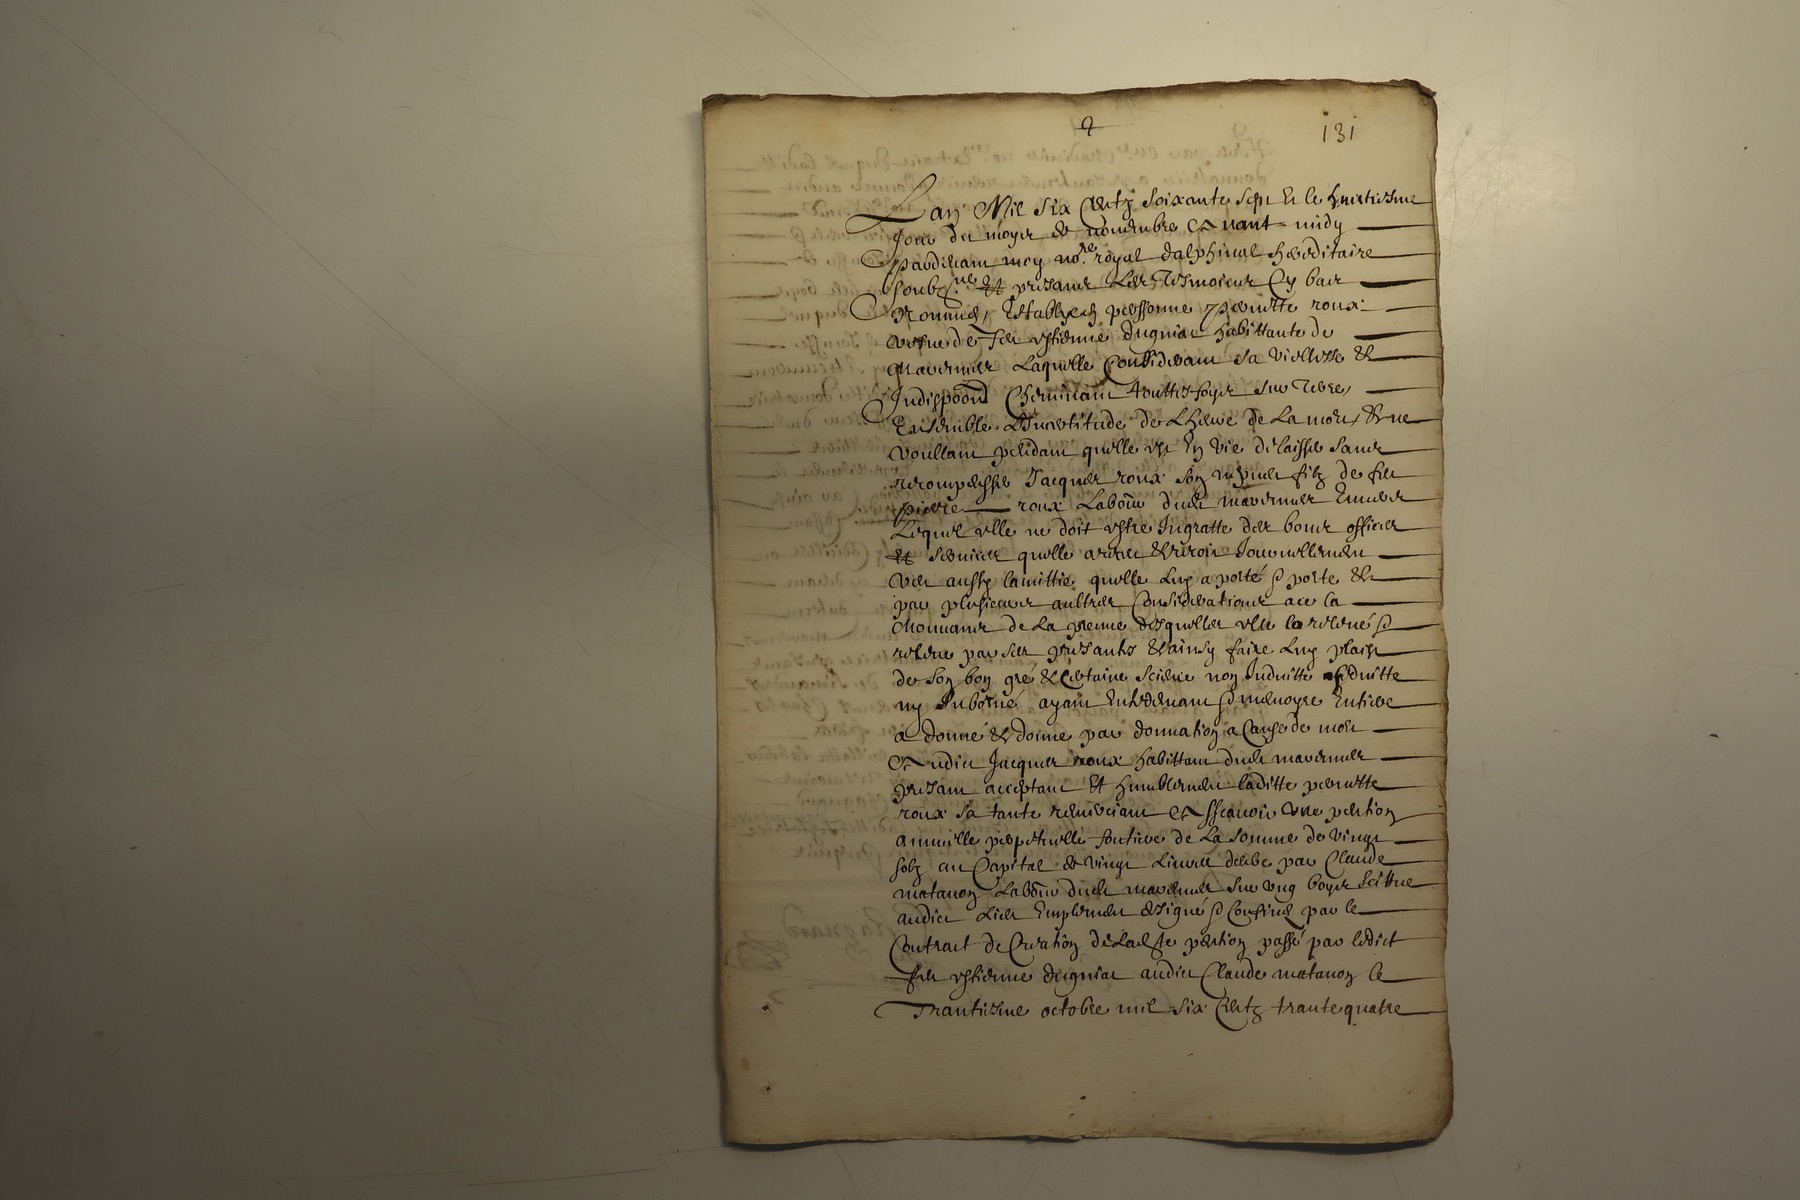 131
Lan Mil six Centz soixante sept Et le huictiesme
Jour du moys de novembre avant midy
pardevant moy no.re royal dalphinal hereditaire
soubz.né Et presants Les Tesmoings Cy bas
Nommés, Establye en personne pernette roux
vefve de feu estienne dugniat habittante de
mavernier Laquelle Considerant sa viellesse &
Indispoon Cheminant touttesfoys sur Terre,
Ensemble Lincertitude de Lheure de La mort, & ne
voullant pendant quelle est En vie delaisser sans
recompenser Jacques roux son nepveu filz de feu
pierre roux Labour dudt mavernier Envers
Lequel elle ne doit estre Ingratte des bons offices
Et services quelle a receu & reçoit Journellement
veu aussy lamittié quelle Luy a porté & porte &
par plusieurs aultres Considerations ace la
Mouvants de La preuve desquelles elle la relevé &
releve par ses presants & ainsy faire Luy plaist
de son bon gré & Certaine science non Induitte seduitte
ny subornée ayant Entendement & memoyre Entiere
a donné & donne par donnation a Cause de mort
audict Jacques roux habittant dudt mavernier
presant acceptant Et humblement laditte pernette
roux sa tante remerciant assçavoir une pention
annuelle perpetuelle fontiere de La somme de vingt
solz au Capital de vingt Livres deube par Claude
matanon Labour dudt mavernier sur ung boys scittué
audict Lieu Emplement désigné & Confiné par le
Contract de Creation de Ladite pention passé par ledict
feu estienne dugniat audict Claude matanon le
Trantiesme octobre mil six Centz trante quatre